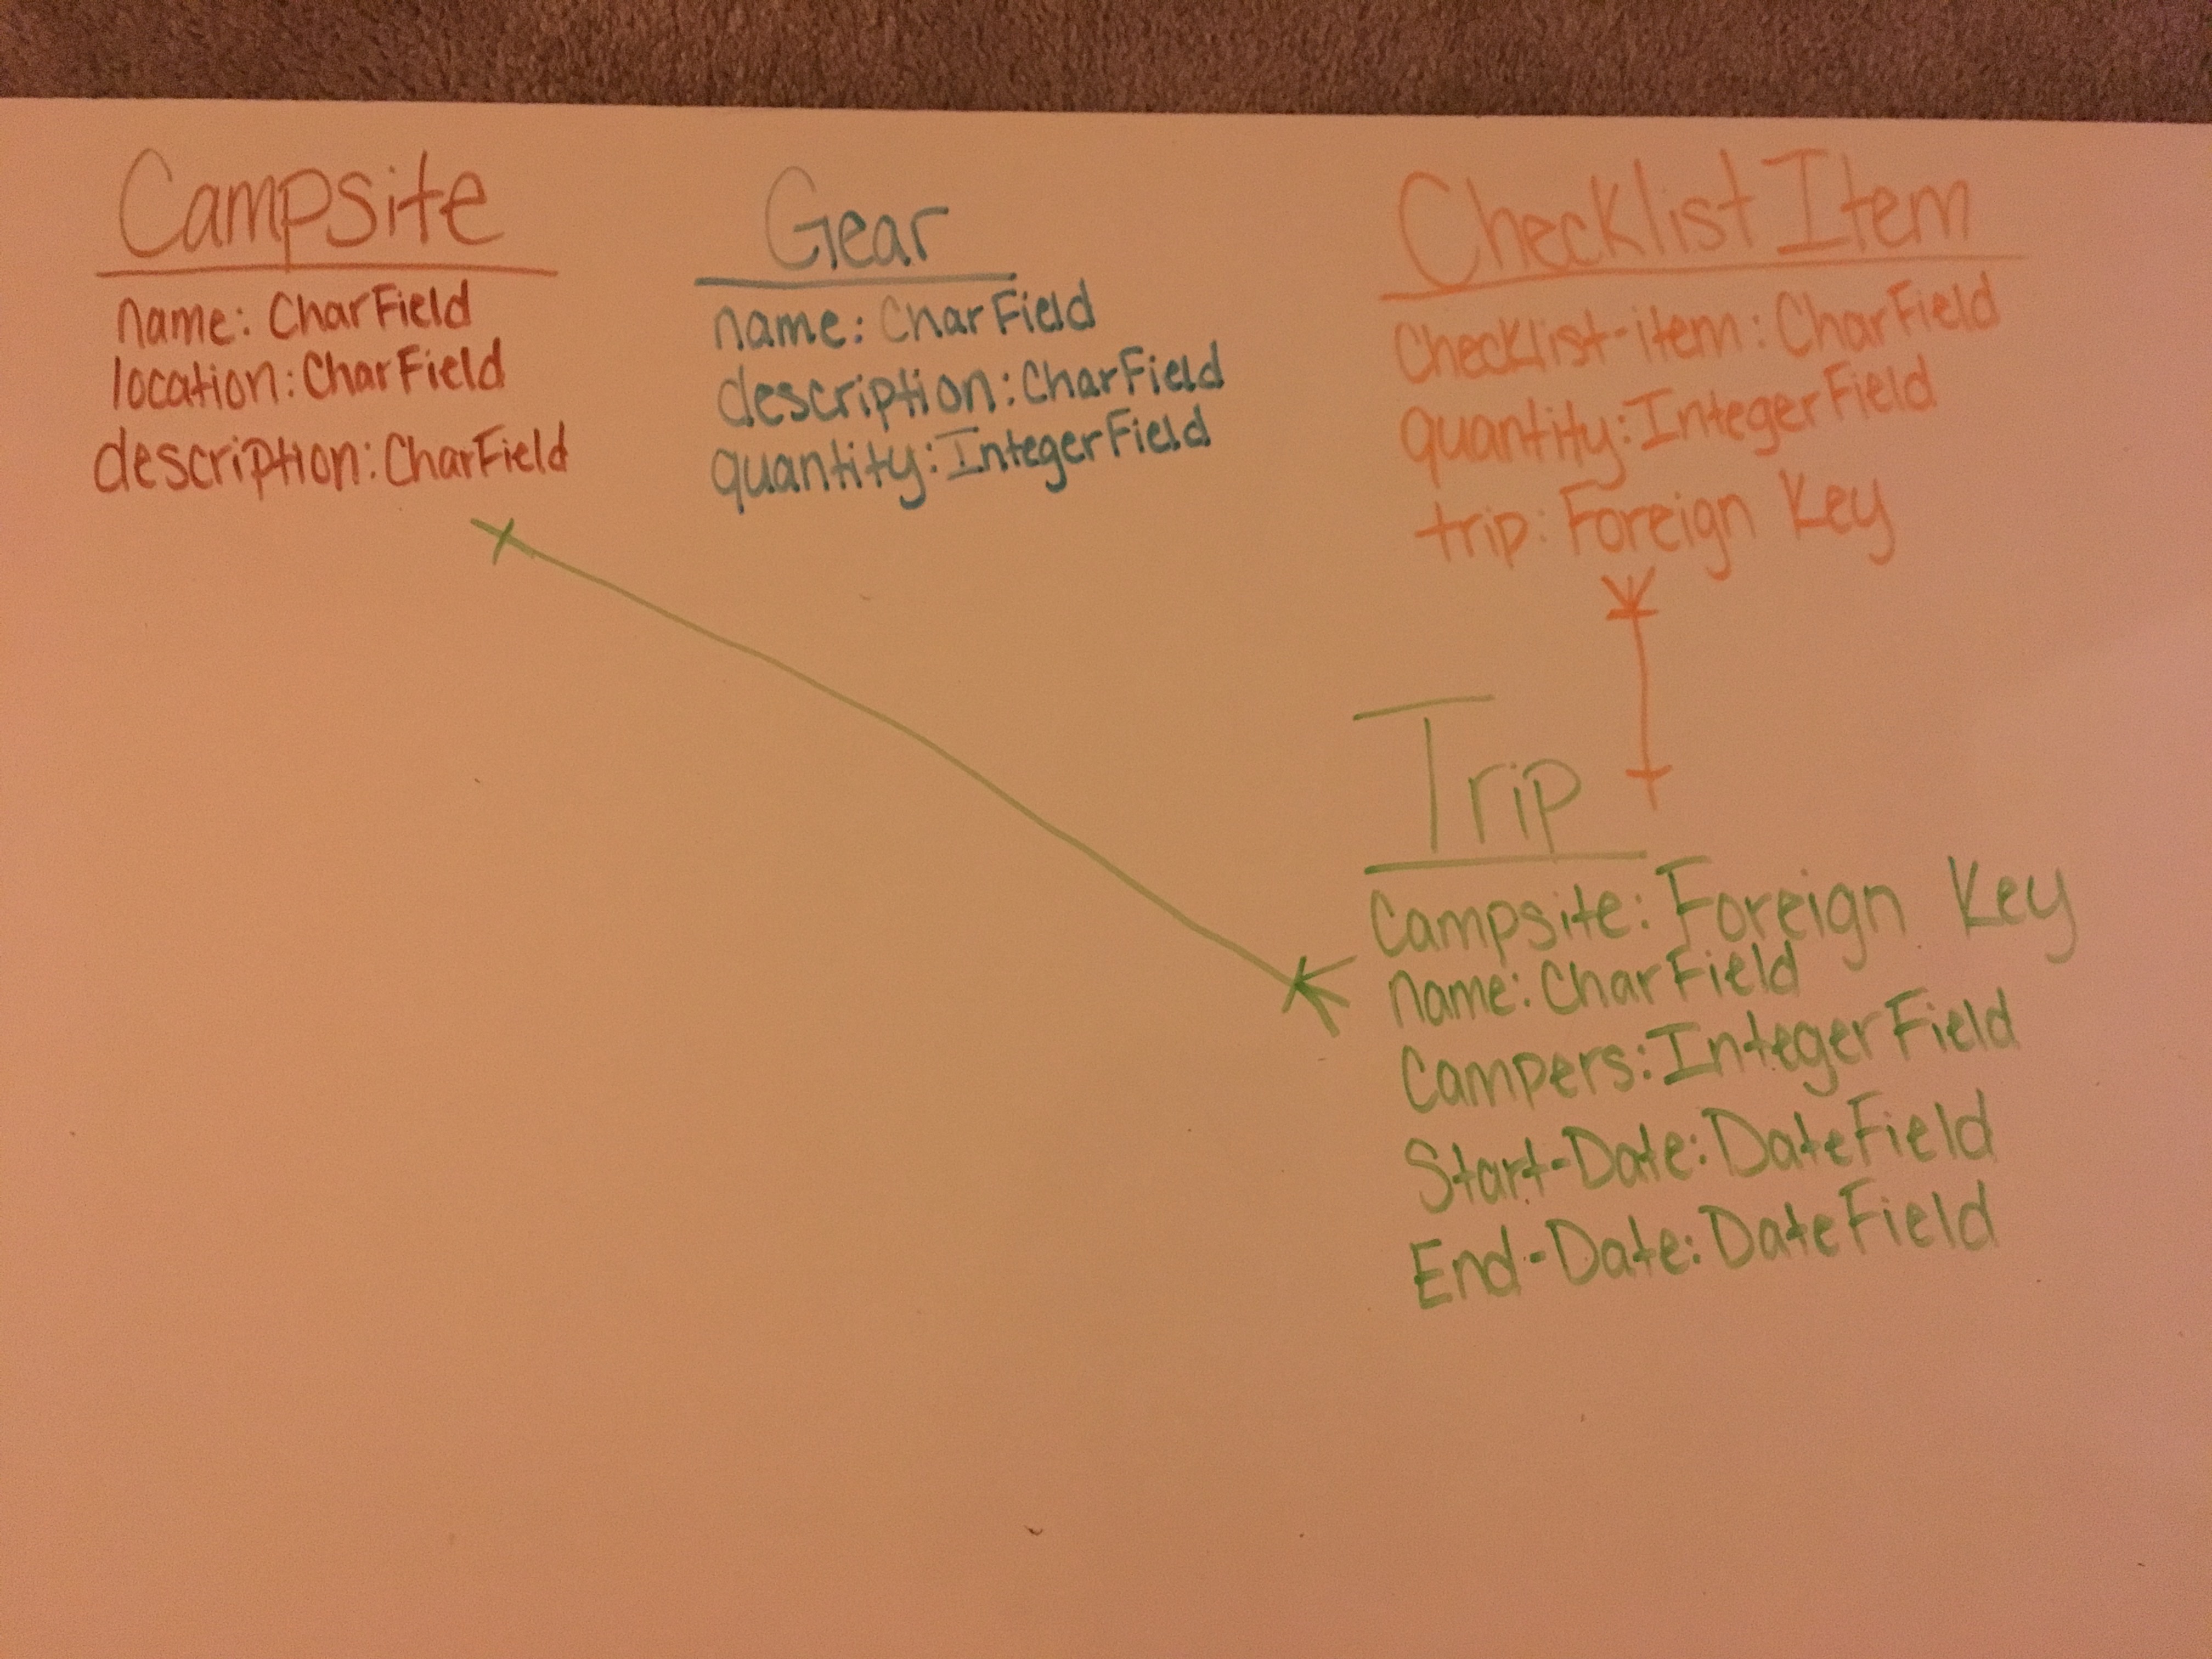 Campsite
name: CharField
location: CharField
description: CharField
Gear
name: CharField
description: CharField
quantity: IntegerField
Checklist Item
Checklist-item: CharField
quantity: IntegerField
trip: Foreign Key
Trip
Campsite: Foreign Key
name: CharField
Campers: IntegerField
Start-Date: DateField
End-Date: DateField